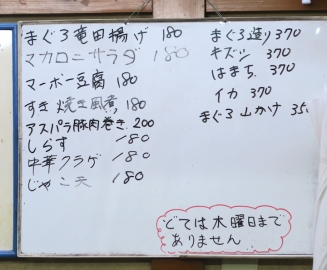 まぐろ竜田揚げ 180
マカロニサラダ 180
マーボー豆腐 180
すき焼き風煮 180
アスパラ豚肉巻き 200
しらす 180
中華クラゲ 180
じゃこ天 180
まぐろ造り 370
キズシ 370
はまち 370
イカ 370
まぐろ山かけ 350
どては木曜日まで
ありません